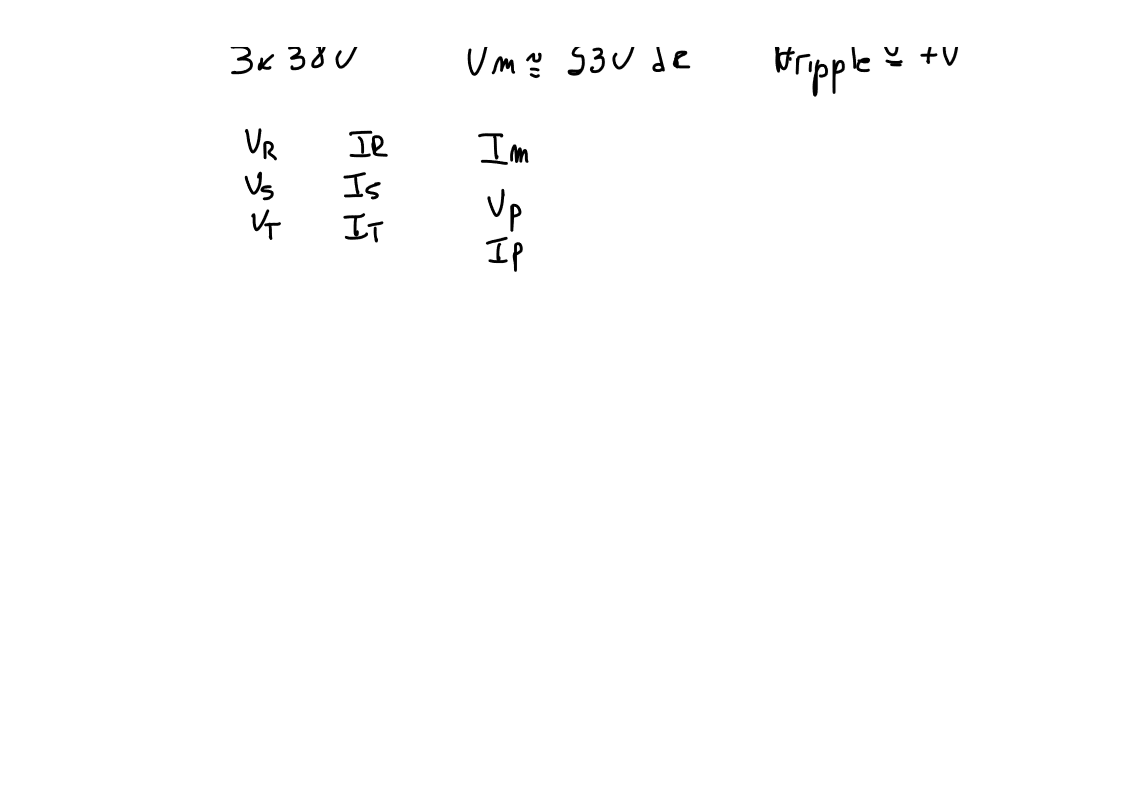 3x 38V Vm ≅ 53V dc Vripple ≅ +V
VR IR Im
VS IS VP
VT IT IP